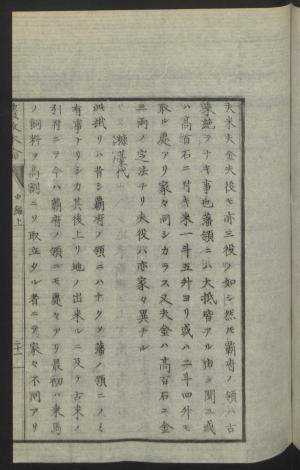 夫米夫金夫役モ亦三役ノ如シ然圧覇府ノ領ハ古
来絶テナキ事也藩領ニハ大抵皆アル由ヲ聞ユ或
ハ高百石ニ対シ米一斗五升ヨリ或ハ二斗四升モ
取ル處アリ家々同シカラス又夫金ハ高百石ニ金
三両ノ定法ナリ夫役ハ亦家々異ナル
糠藁代
此掛リハ昔シ覇府ノ領ニハナク又藩ノ領ニノミ
有事ナリシカ其後上リ地ノ出来ルニ及テ古来ノ
引付ニテ今ハ覇府ノ領ニモ處々アリ最初ハ乗馬
ノ飼料ヲ高割ニシ取立タル者ニテ家々不同アリ
中編上